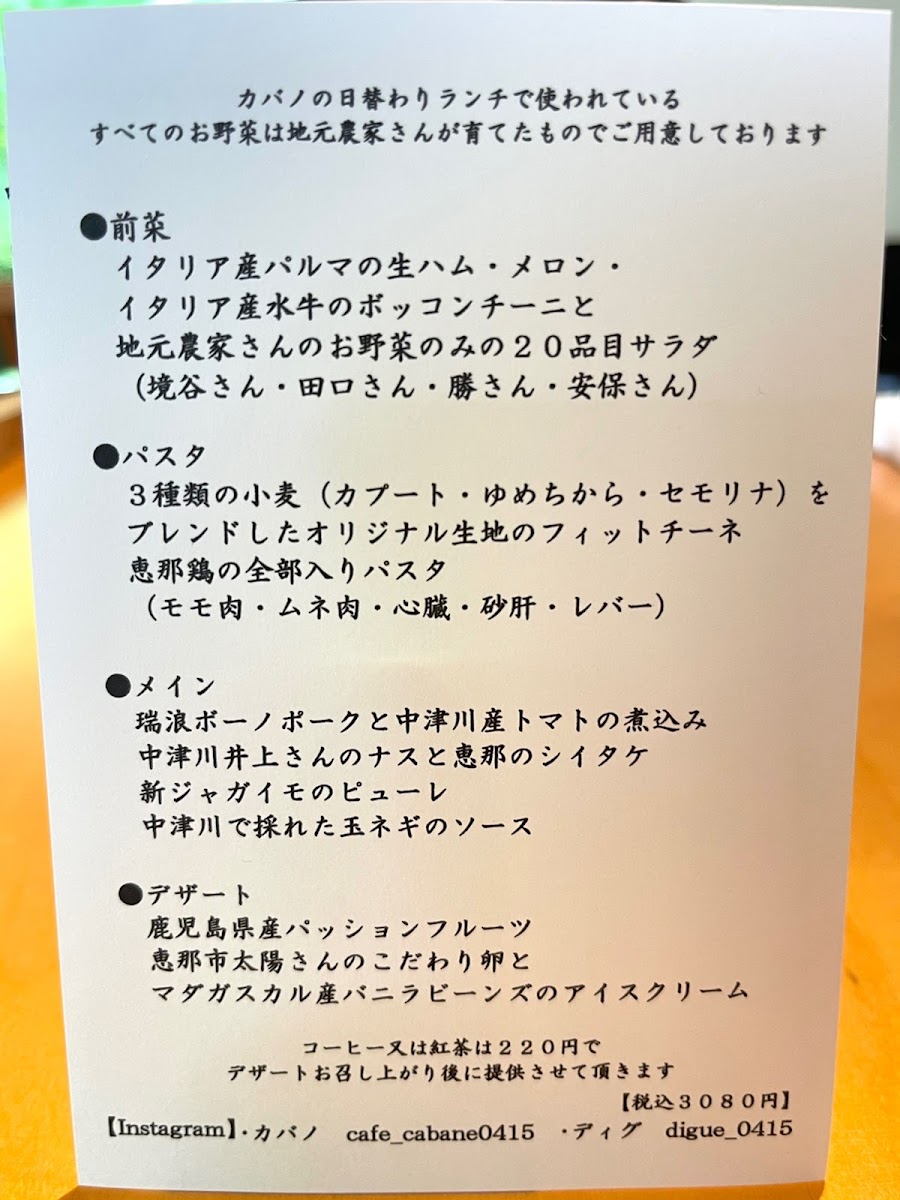 カバノの日替わりランチで使われている
すべてのお野菜は地元農家さんが育てたものでご用意しております
●前菜
イタリア産パルマの生ハム・メロン・
イタリア産水牛のボッコンチーニと
地元農家さんのお野菜のみの２０品目サラダ
（境谷さん・田口さん・勝さん・安保さん）
●パスタ
３種類の小麦（カプート・ゆめちから・セモリナ）を
ブレンドしたオリジナル生地のフィットチーネ
恵那鶏の全部入りパスタ
（モモ肉・ムネ肉・心臓・砂肝・レバー）
●メイン
瑞浪ボーノポークと中津川産トマトの煮込み
中津川井上さんのナスと恵那のシイタケ
新ジャガイモのピューレ
中津川で採れた玉ネギのソース
●デザート
鹿児島県産パッションフルーツ
恵那市太陽さんのこだわり卵と
マダガスカル産バニラビーンズのアイスクリーム
コーヒー又は紅茶は２２０円で
デザートお召し上がり後に提供させて頂きます
【税込３０８０円】
【Instagram】・カバノ　cafe_cabane0415　・ディグ　digue_0415